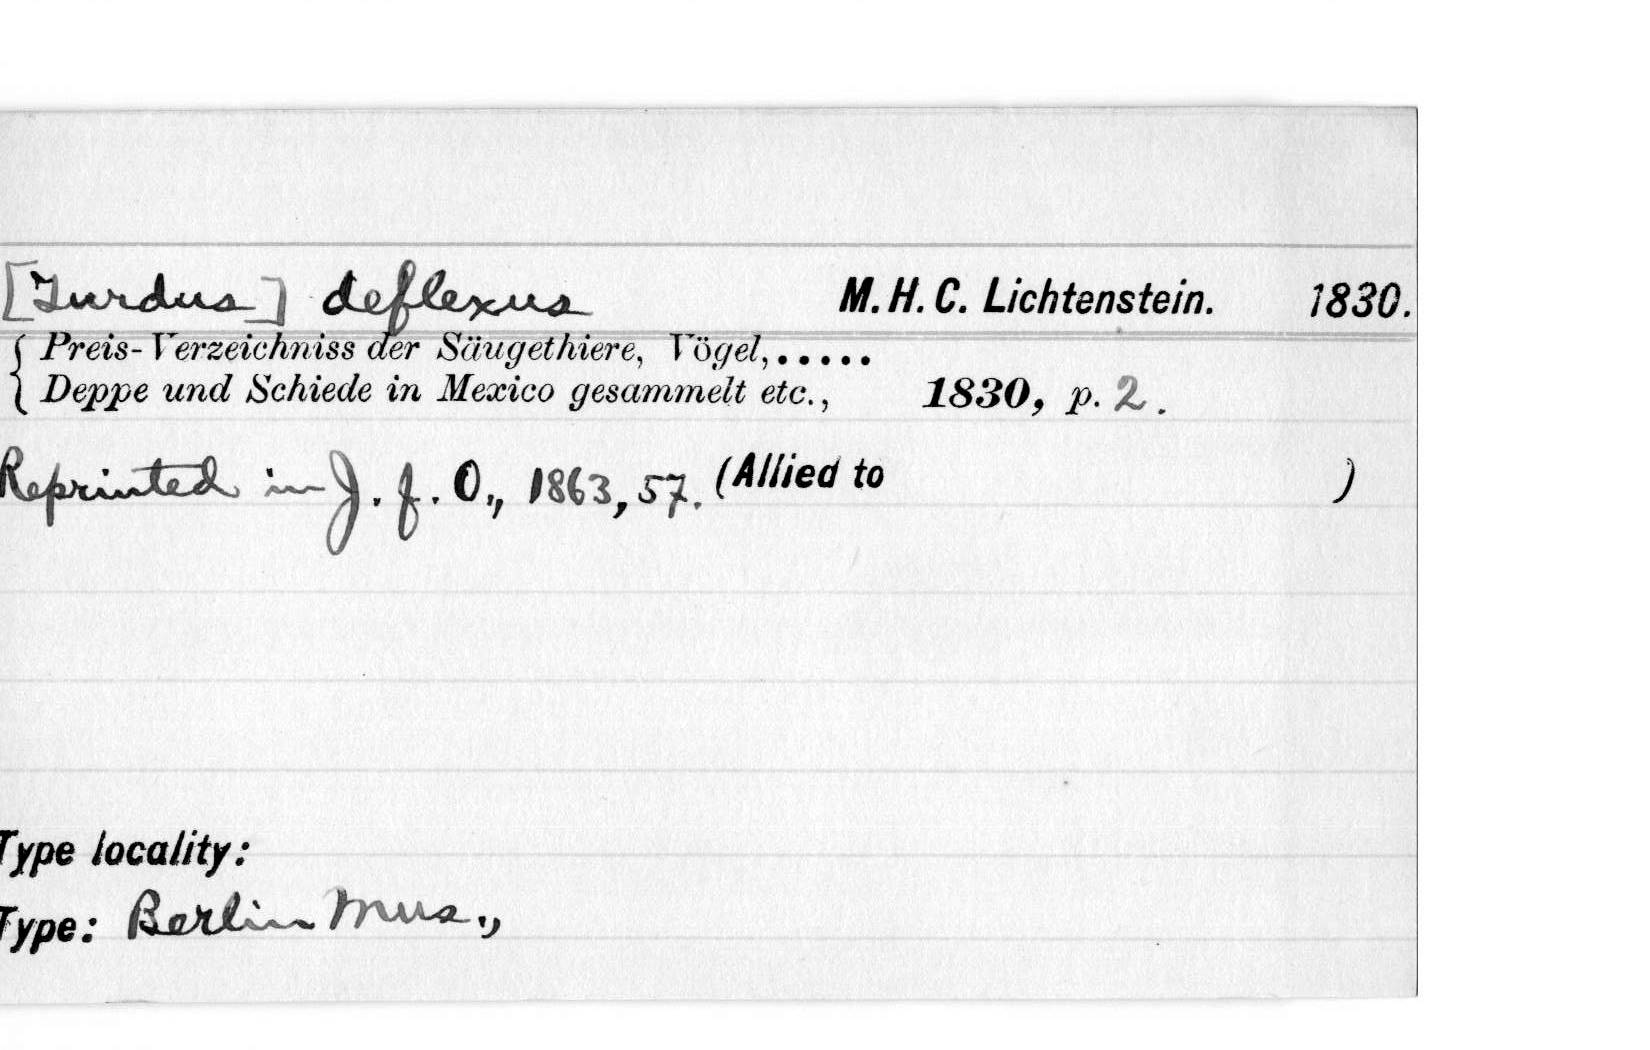 [Turdus] deflexus M. H. C. Lichtenstein. 1830.
{ Preis-Verzeichniss der Säugethiere, Vögel,.....
{ Deppe und Schiede in Mexico gesammelt etc., 1830, p. 2.
Reprinted in J. f. O., 1863, 57. (Allied to )
Type locality:
Type: Berlin Mus.,